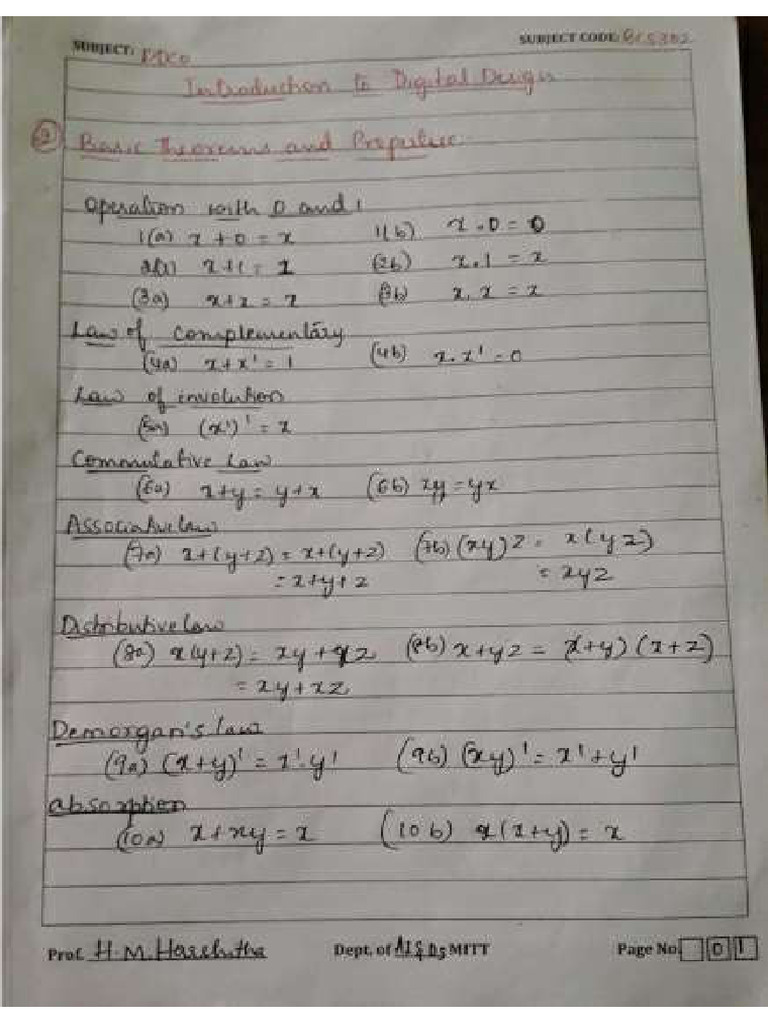 SUBJECT: DDCO SUBJECT CODE: BCS302
Introduction to Digital Design
2) Basic Theorems and Properties:
Operation with 0 and 1
1(a) x + 0 = x 1(b) x . 0 = 0
2(a) x+1 = 1 (2b) x . 1 = x
(3a) x+x = x (3b) x . x = x
Law of Complementary
(4a) x+x' = 1 (4b) x . x' = 0
Law of involution
(5a) (x')' = x
Commutative Law
(6a) x+y = y+x (6b) xy = yx
Associative law
(7a) x+(y+z) = x+(y+z) (7b) (xy)z = x(yz)
= x+y+z = xyz
Distributive law
(8a) x(y+z) = xy + xz (8b) x+yz = (x+y) (x+z)
= xy+xz
Demorgan's law
(9a) (x+y)' = x'.y' (9b) (xy)' = x'+y'
absorption
(10a) x+xy = x (10b) x(x+y) = x
Prof. H.M. Harshitha Dept. of AI & DS MITT Page No. 01